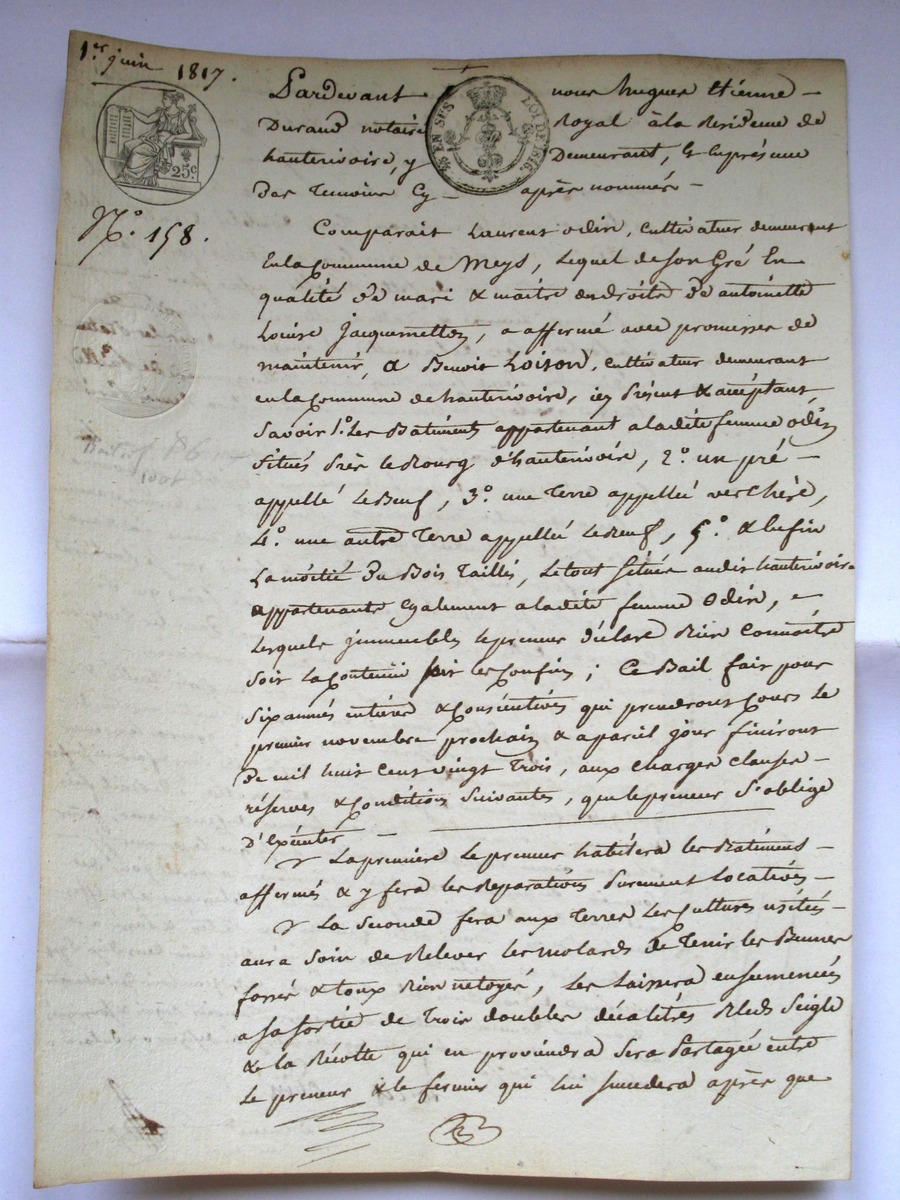 1.er juin 1817.
Pardevant nous hugues Etienne
Durand notaire Royal à la Residence de
hauterivoire, y Demeurant, & En présence
des Temoins Cy après nommés
25c
LOI DE 1816.
N.o 158.
Comparait Laurent odin, cultivateur demeurant
En la Commune de Meys, Lequel de son Gré En
qualité de mari & maitre en droits de antoinette
Louise jacquemetton, a affermé avec promesses de
maintenir, a Benoit Loison, cultivateur demeurant
en la Commune de hauterivoire, icy Présent & acceptant,
Savoir 1.o Les Batiments appartenant a ladite femme odin
Situés Près le Bourg d'hauterivoire, 2.o un pré
appellé Le Beuf, 3.o une Terre appellée verchère,
4.o une autre Terre appellée Le Beuf, 5.o & Enfin
La moitié du Bois Taillés, Le tout Située audit hauterivoire
appartenants Egalement a ladite femme Odin,
Lesquels jmmeubles le preneur déclare Bien Connoitre
Soit La Contenue soit les Confins; Ce Bail fait pour
Six années entières & Consécutives qui prendront Cours Le
premier novembre prochain & a pareil jour finiront
de mil huit Cent vingt Trois, aux Charges Clauses
réserves & Conditions Suivantes, que le preneur S'oblige
D'Exécuter
La première Le preneur habitera les Batimens
affermés & y fera les Reparations Purement Locatives
La Seconde fera aux Terres Les Cultures usitées
aura Soin de Relever les molards de Tenir les
fossés & Bien netoyés, Les Laissera ensemencées
a Sa Sortie de Trois doubles décalitres Bleds Seigle
& la Récolte qui en proviendra Sera Partagée entre
Le preneur & le fermier qui lui Succedera après que